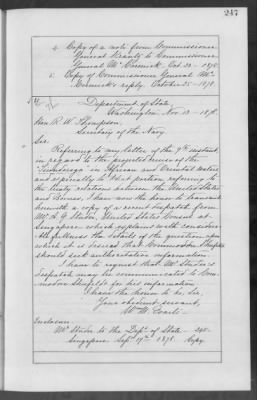 247
4. Copy of a note from Commissioner
General Berauty to Commissioner
General McCormick Oct. 23 - 1878.
5. Copy of Commissioner General Mc
Cormick's reply. October 25 - 1878.
Department of State,
Washington Nov. 13 - 1878.
Hon. R. W. Thompson,
Secretary of the Navy.
Sir,
Referring to my letter of the 9th instant
in regard to the projected cruise of the
Ticonderoga in African and Oriental waters
and especially to that portion referring to
the treaty relations between the United States
and Borneo, I have now the honor to transmit
herewith a copy of a recent despatch from
Mr. A. G. Studer, United States Consul at
Singapore which explains with consider-
able fullness the details of the question upon
which it is desired that Commodore Shufeldt
should seek authoritative information.
I have to request that Mr. Studer's
despatch may be communicated to Com-
modore Shufeldt for his information.
I have the honor to be, Sir,
Your obedient servant,
Wm. M. Evarts.
Enclosure:
Mr. Studer to the Dept. of State
Singapore Sept. 17th 1878. Copy.